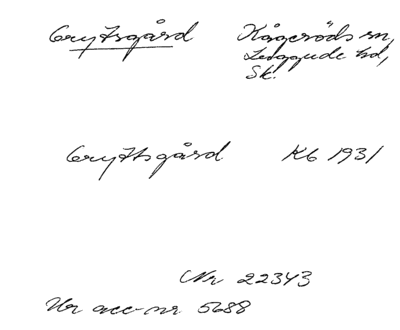 Gryttsgård Kågeröds sn,
Luggude hd,
Sk.
Gryttsgård Kb 1931
Nr 22343
Ur acc-nr 5688